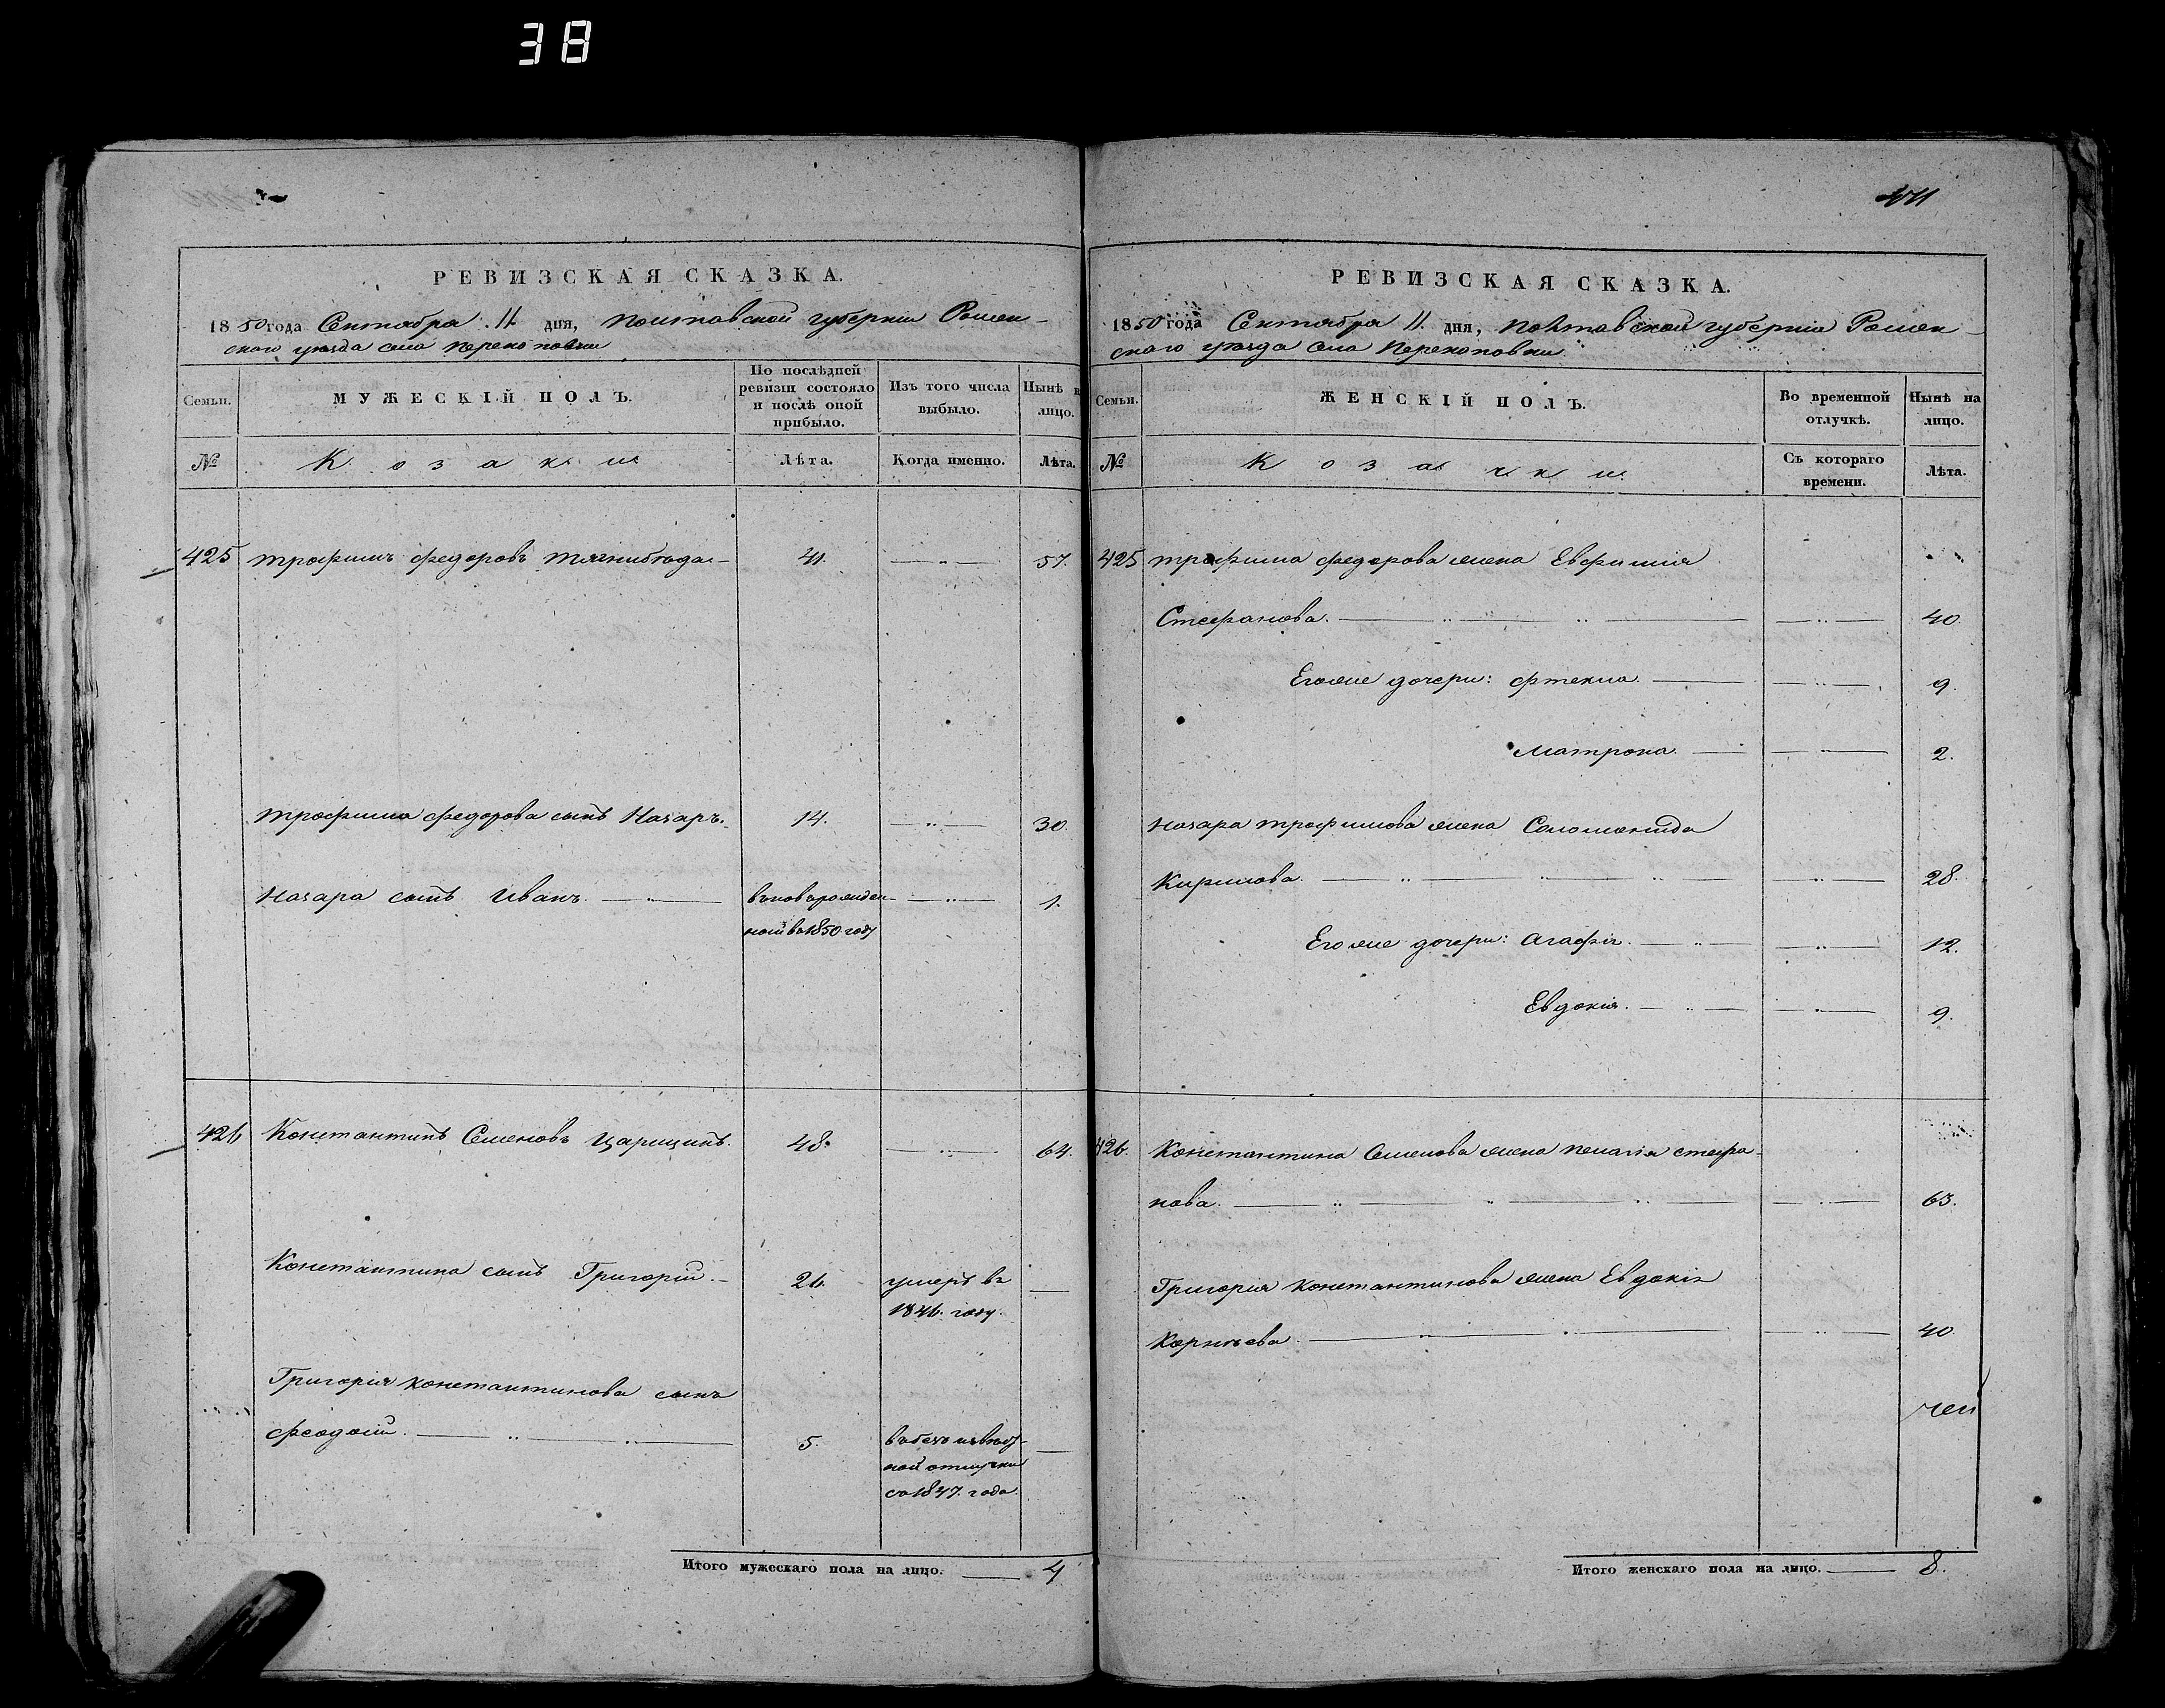 38
РЕВИЗСКАЯ СКАЗКА.
1850 года Сентября 11 дня, Полтавской губерніи Ромен-
скаго уѣзда села Перекоповки
Семьи.
МУЖЕСКІЙ ПОЛЪ.
По послѣдней
ревизіи состояло
и послѣ оной
прибыло.
Изъ того числа
выбыло.
Нынѣ н
лицо.
№
Козаки
Лѣта.
Когда именно.
Лѣта.
425 Трофимъ Федоровъ 41. 57.
Трофима Федорова сынъ Назаръ. 14. 30.
Назара сынъ Иванъ. вновьрожден-
ной в 1850 году 1.
426 Константинъ Семеновъ Царицинъ. 48. 64.
Константина сынъ Григорій. 26. умеръ въ
1846. году.
Григорія Константинова сынъ
Феодосій. 5.
ной отлучки
съ 1847. года.
Итого мужескаго пола на лицо. 4
РЕВИЗСКАЯ СКАЗКА.
1850 года Сентября 11. дня, Полтавской губерніи Ромен-
скаго уѣзда села Перекоповки
Семьи.
ЖЕНСКІЙ ПОЛЪ.
Во временной
отлучкѣ.
Нынѣ на
лицо.
№
Козачки
Съ котораго
времени.
Лѣта.
425 Трофима Федорова жена Евфимія
Стефанова. 40.
Егоже дочери: Фтекла. 9.
Матрона. 2.
Назара Трофимова жена Соломонида
Кирилова. 28.
Егоже дочери: Агафія. 12.
Евдокія. 9.
426. Константина Семенова жена Пелагія Стефа-
нова. 63.
Григорія Константинова жена Евдокія
Корнѣева. 40
Итого женскаго пола на лицо. 8.